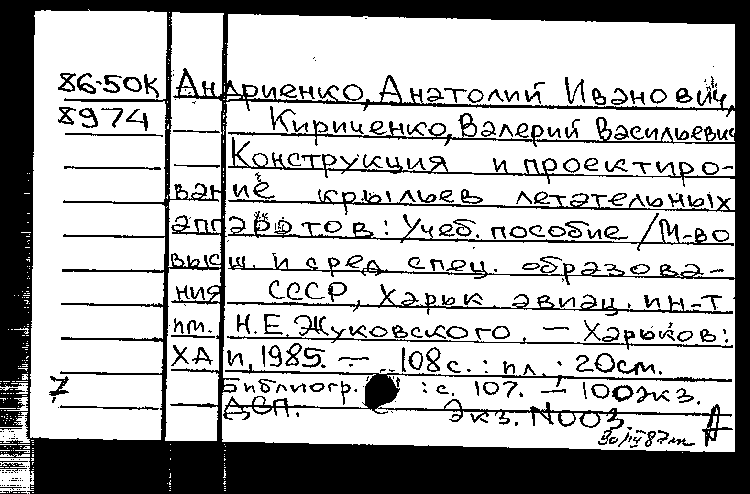 86-50К Андриенко, Анатолий Иванович,
8974 Кириченко, Валерий Васильевич
Конструкция и проектиро-
вание крыльев летательных
аппаратов: Учеб. пособие / М-во
высш. и сред спец. образова-
ния СССР, Харьк. авиац. ин-т
им. Н.Е. Жуковского. — Харьков:
ХАИ, 1985. — 108 с. : ил. ; 20 см.
7 Библиогр. : с. 107. — 100 экз.
ДСП. Экз. N003.